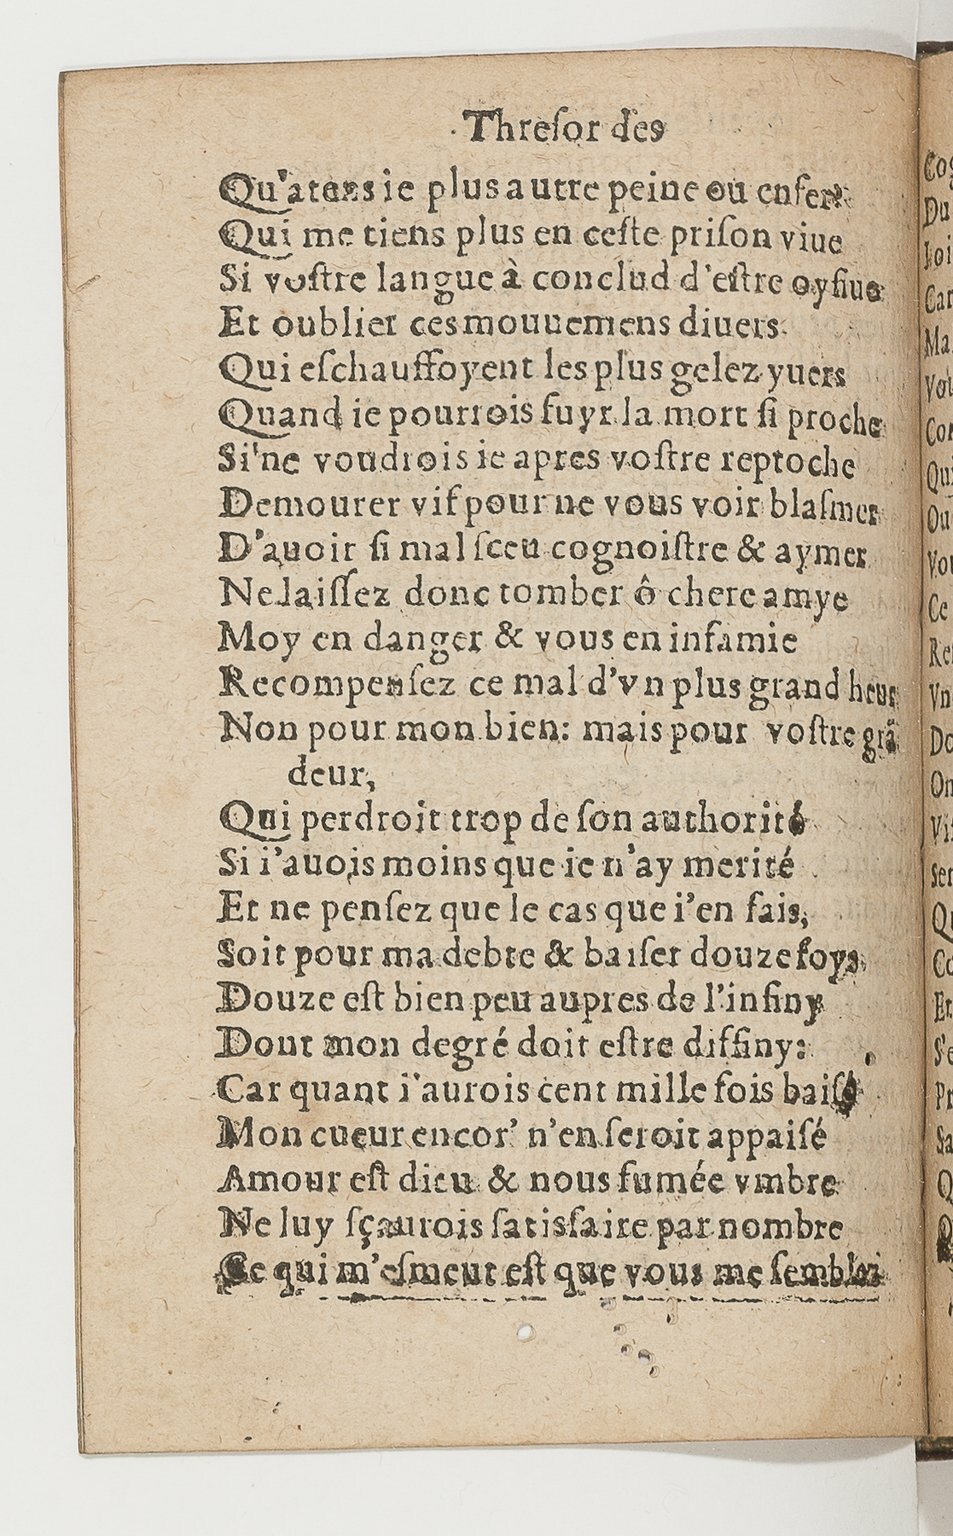 Thresor des
Qu'atens ie plus autre peine ou enfer:
Qui me tiens plus en ceste prison viue
Si vostre langue à conclud d'estre oysiue
Et oublier ces mouuemens diuers.
Qui eschauffoyent les plus gelez yuers
Quand ie pourrois fuyr la mort si proche
Si ne voudrois ie apres vostre reproche
Demourer vif pour ne vous voir blasmer
D'auoir si mal sceu cognoistre & aymer
Ne laissez donc tomber ô chere amye
Moy en danger & vous en infamie
Recompensez ce mal d'vn plus grand heur
Non pour mon bien: mais pour vostre grã
deur,
Qui perdroit trop de son authorité
Si i'auois moins que ie n'ay merité
Et ne pensez que le cas que i'en fais,
Soit pour ma debte & baiser douze foys
Douze est bien peu aupres de l'infiny
Dont mon degré doit estre diffiny:
Car quant i'aurois cent mille fois baisé
Mon cueur encor' n'en seroit appaisé
Amour est dieu & nous fumée vmbre
Ne luy sçaurois satisfaire par nombre
Ce qui m'esmeut est que vous me semblei